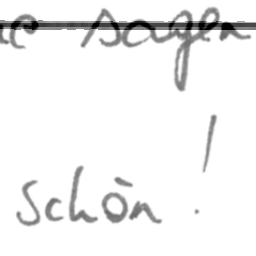 sagen
schön!